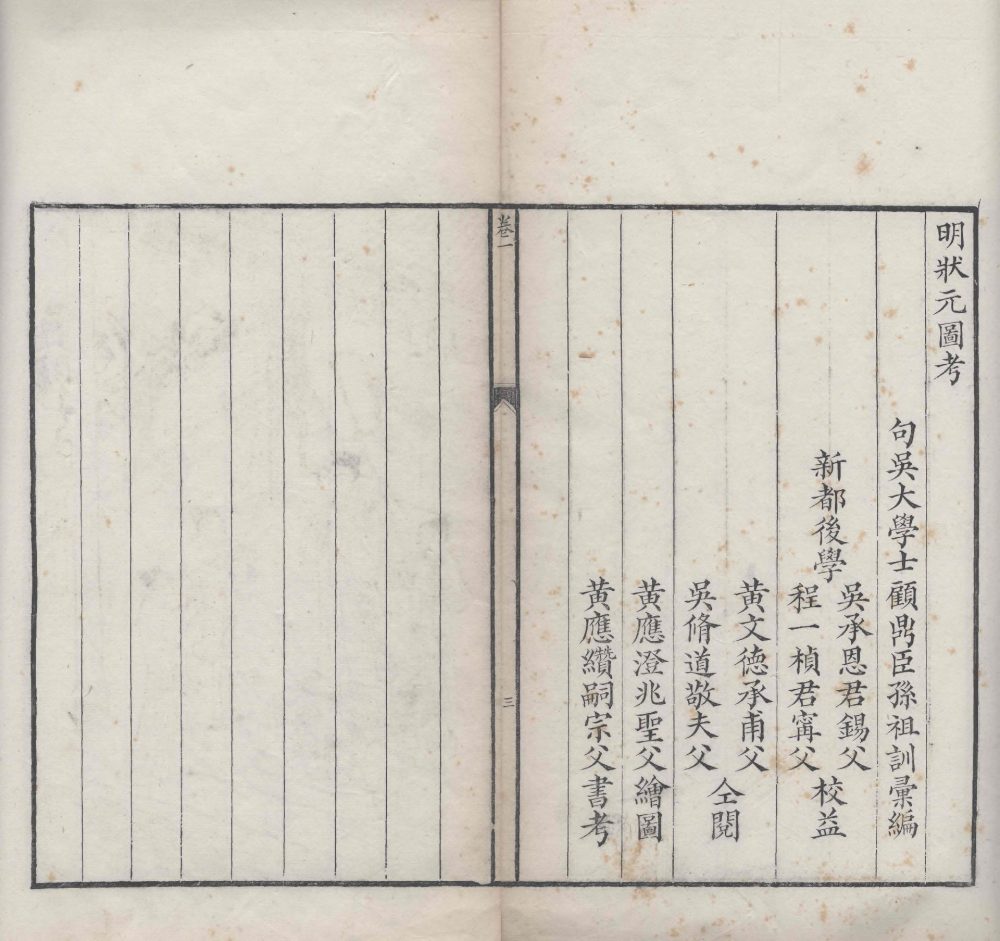 明狀元圖考
句吳大學士顧鼎臣孫祖訓彙編
吳承恩君錫父
新都後學
校益
程一楨君寗父
黃文德承甫父
仝閱
吳脩道敬夫父
黃應澄兆聖父繪圖
黃應纘嗣宗父書考
卷一
三